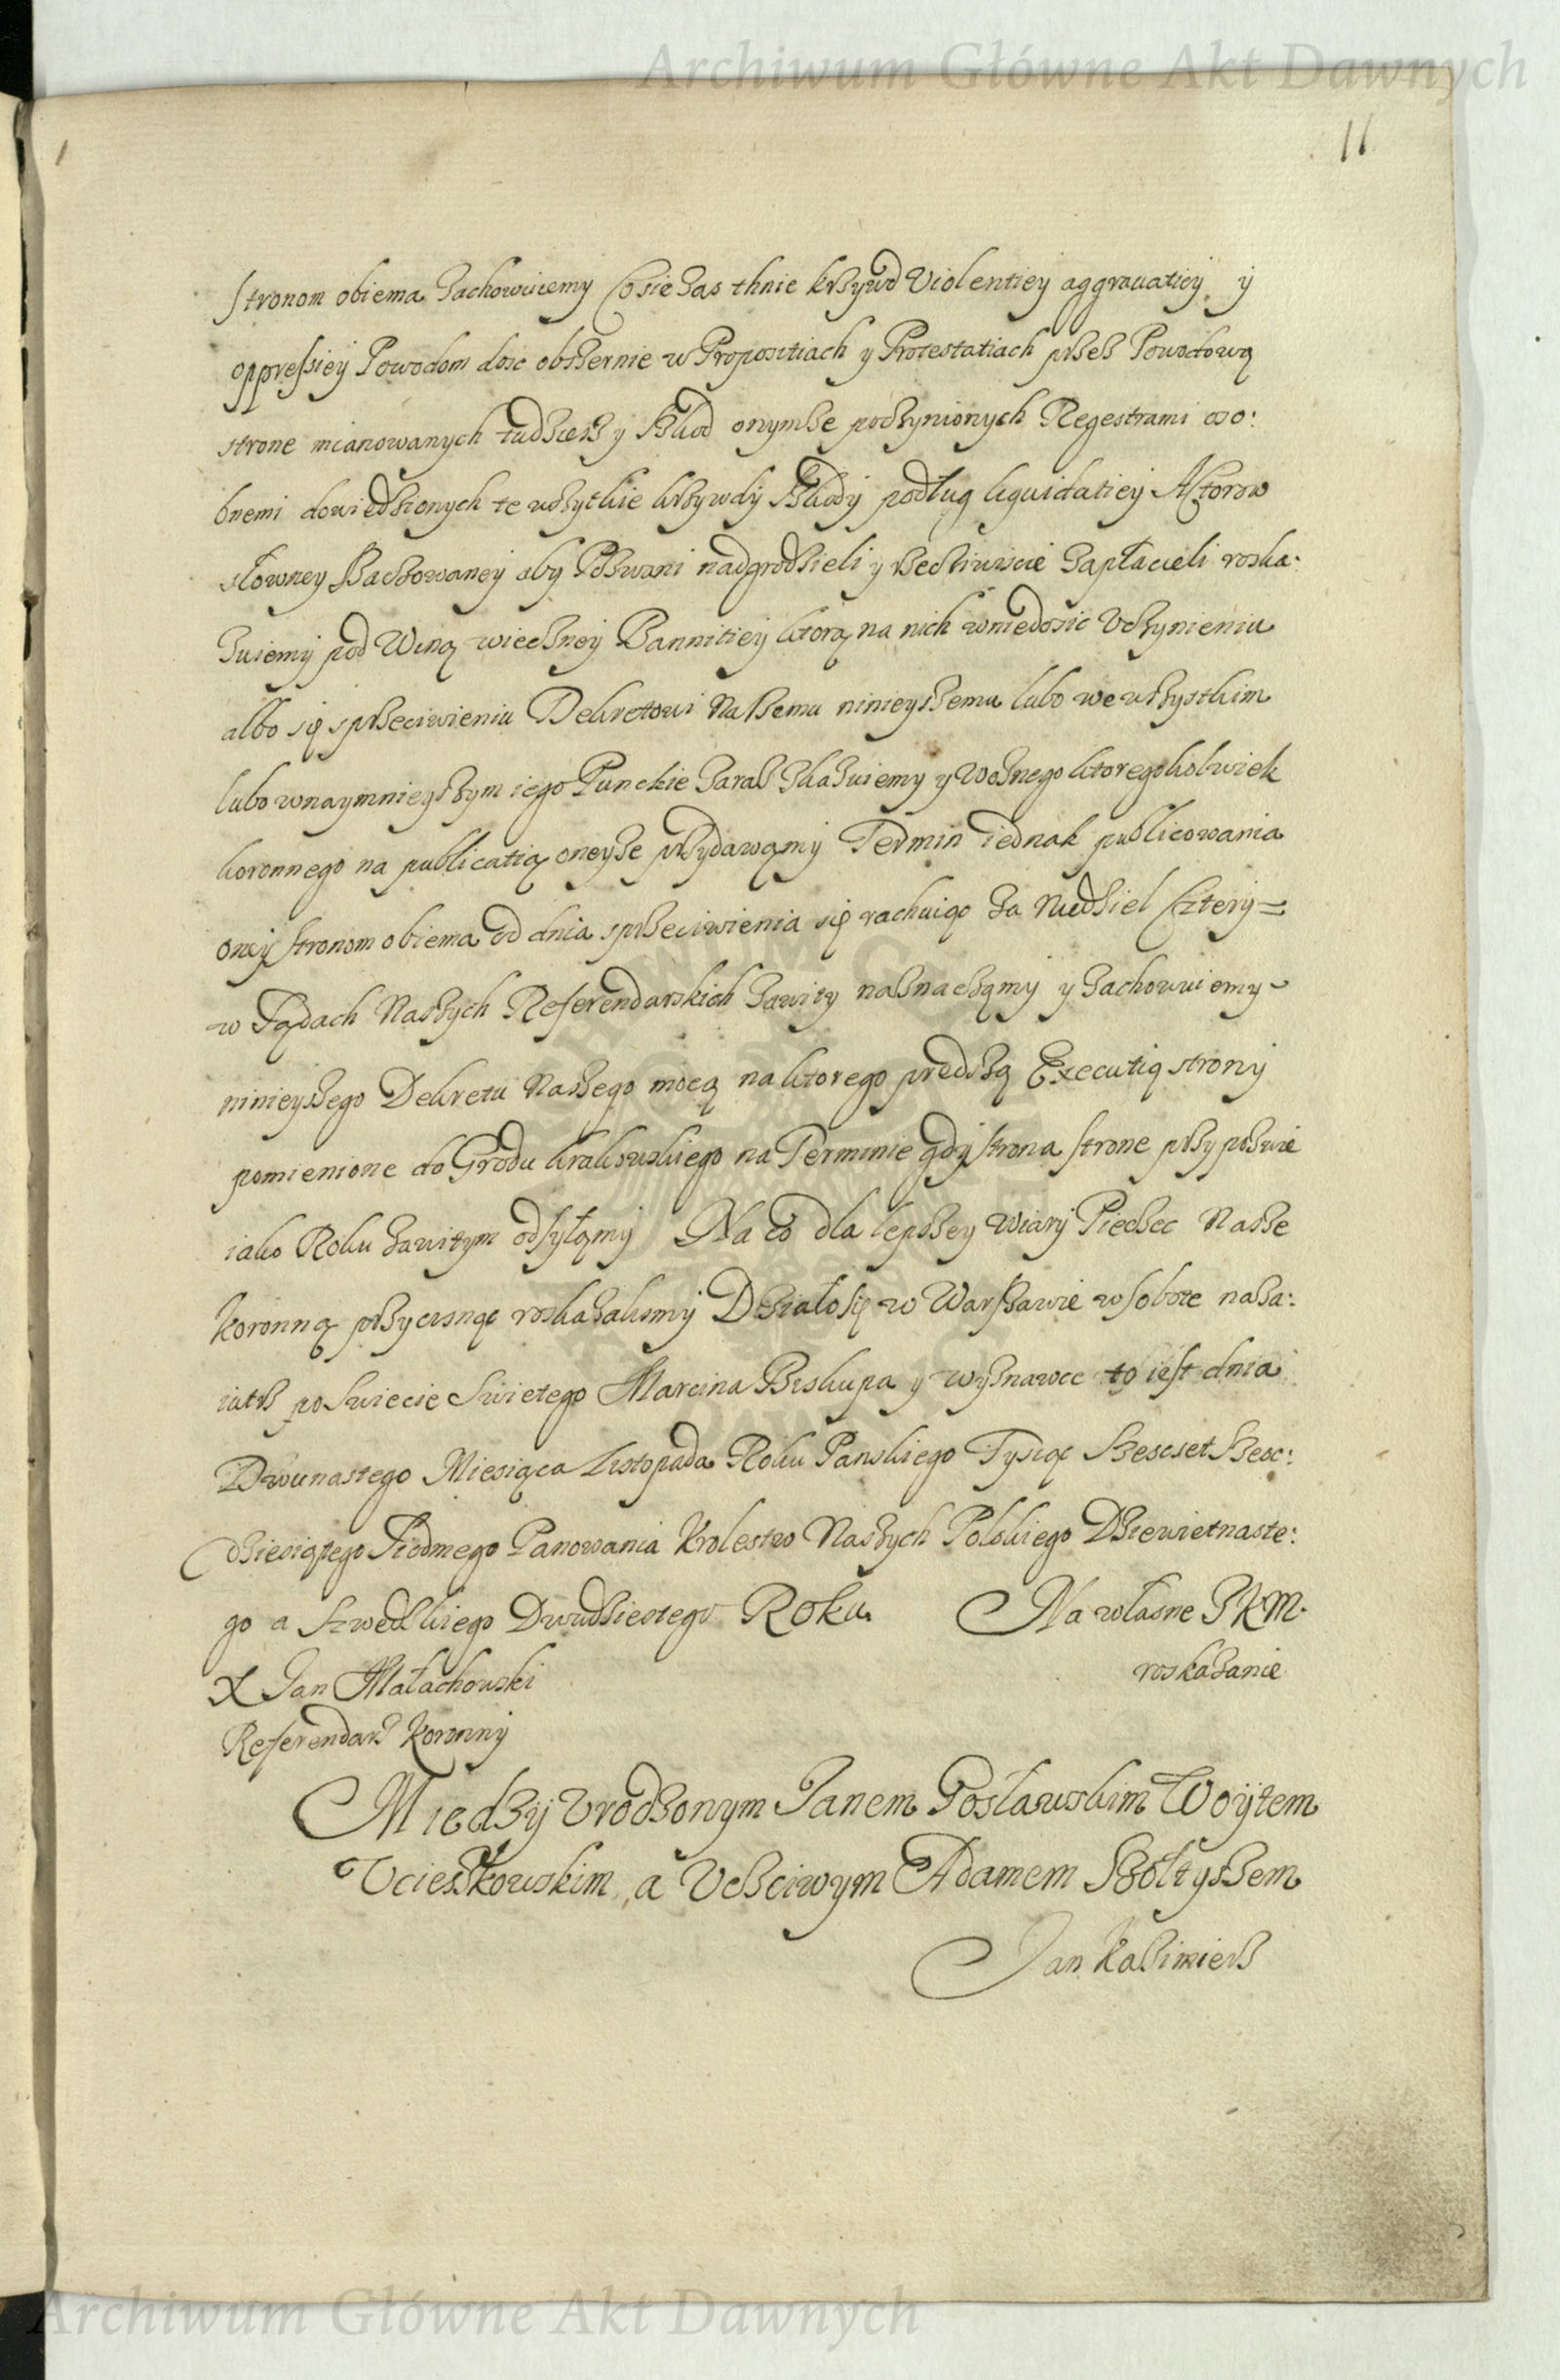 Archiwum Główne Akt Dawnych
11
stronom obiema zachowuiemy Co sie zas tknie krzywd Violentiey aggrauatiey y
oppressiey Powodom dosc obszernie w Propozitiach y Protestatiach przez Powodową
strone mianowanych tudziesz y szkod onymze poczynionych Regestrami oso:
bnemi dowiedzionych te wszytkie krzywdy szkody podług liquidatiey Aktorow
słowney szaczowaney aby Pozwani nadgrodzieli y rzecziwiscie zapłacieli roska:
zuiemy pod Winą wieczney Bannitiey ktorą na nich wniedosic Vczynieniu
albo się sprzeciwieniu Dekretowi Naszemu ninieyszemu lubo we wszystkim
lubo wnaymnieyszym iego Punckie zaraz skazuiemy y Woznego ktoregokolwiek
koronnego na publicatią oneyze przydawamy Termin iednak publicowania
oney stronom obiema od dnia sprzeciwienia się rachuiąc za Niedziel Cztery
w Sądach Naszych Referendarskich zawity naznaczamy y zachowuiemy
ninieyszego Dekretu Naszego mocą na ktorego prędszą Executią strony
pomienione do Grodu krakowskiego na Terminie gdy strona strone przypozwie
iako Roku zawitym odsyłamy Na co dla lepszey Wiary Pieczec Nasze
koronną przycisnąc roskazalismy Działo się w Warszawie w Sobote naza:
iutrz po Swiecie Swietego Marcina Biskupa y wyznawce to iest dnia
Dwunastego Miesiąca Listopada Roku Panskiego Tysiąc Szescset Szesc:
dziesiątego Siodmego Panowania Krolestw Naszych Polskiego Dziewietnaste:
go a Szwedzkiego Dwudziestego Roku Na własne JKM.
roskazanie
X Jan Małachowski
Referendarz Koronny
Miedzy Vrodzonym Janem Posławskim Woytem
Vcieszkowskim, a Vczciwym Adamem Szołtyszem
Jan Kazimierz
Archiwum Główne Akt Dawnych